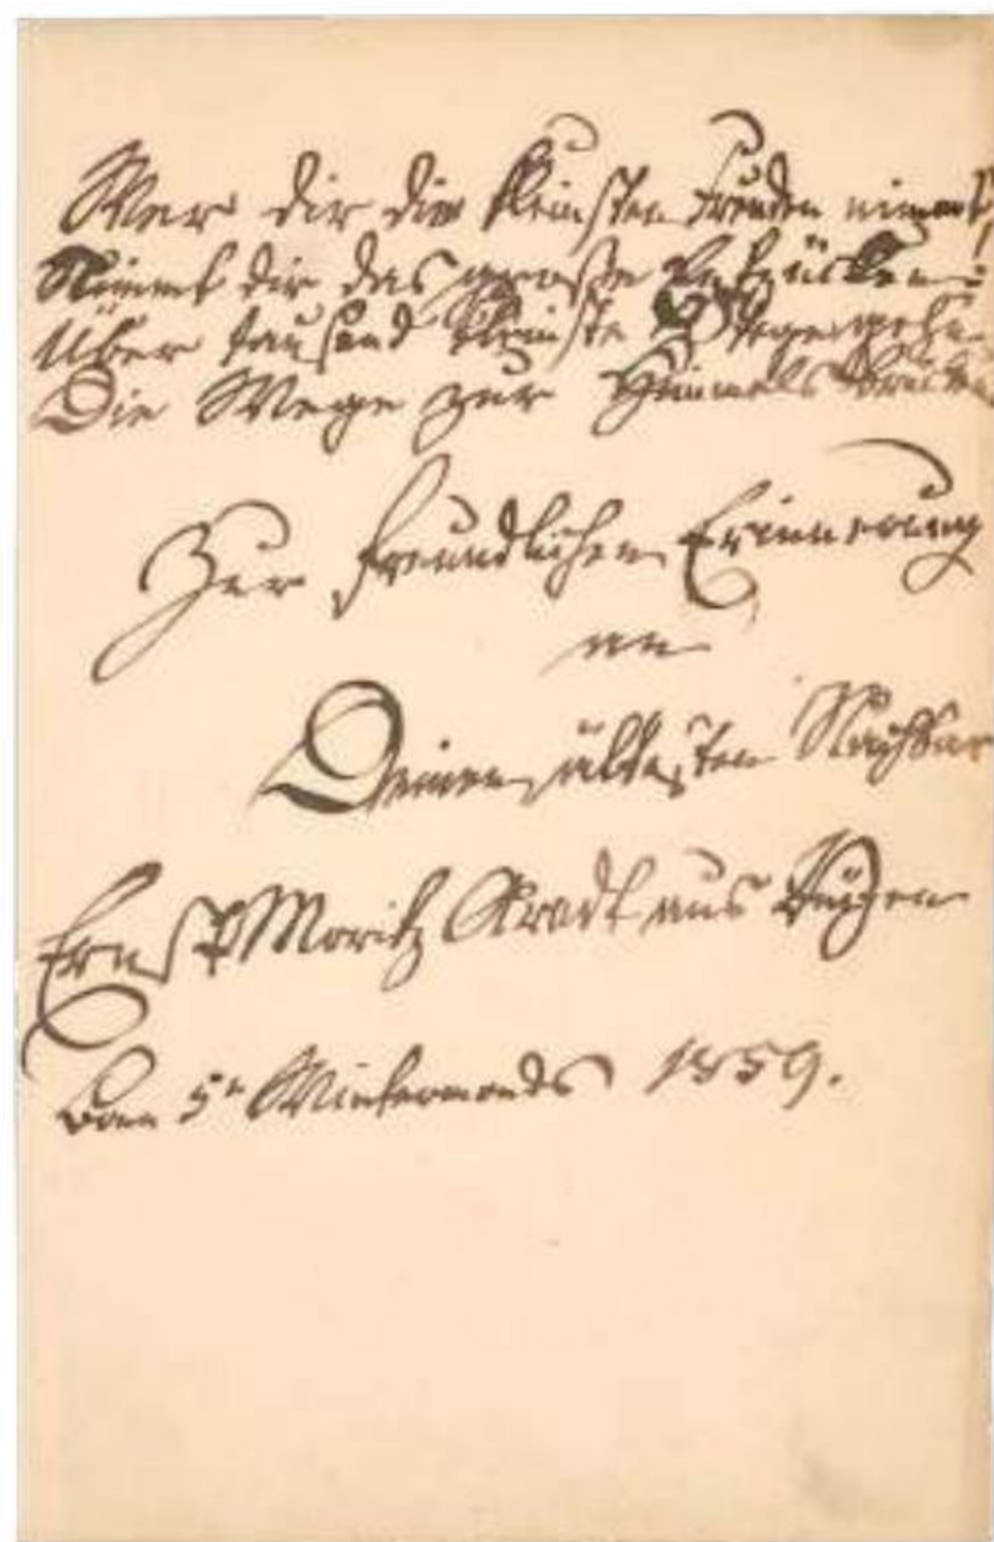 Wer dir die kleinsten Freuden nimmt,
Nimmt dir das große Entzücken:
Über tausend kleinste Stege gehn
Die Wege zur Himmelsbrücke
Zur freundlichen Erinnerung
an
Deinen ältesten Nachbar
Ernst Moritz Arndt aus Rügen
Bonn 5n Wintermonds 1859.